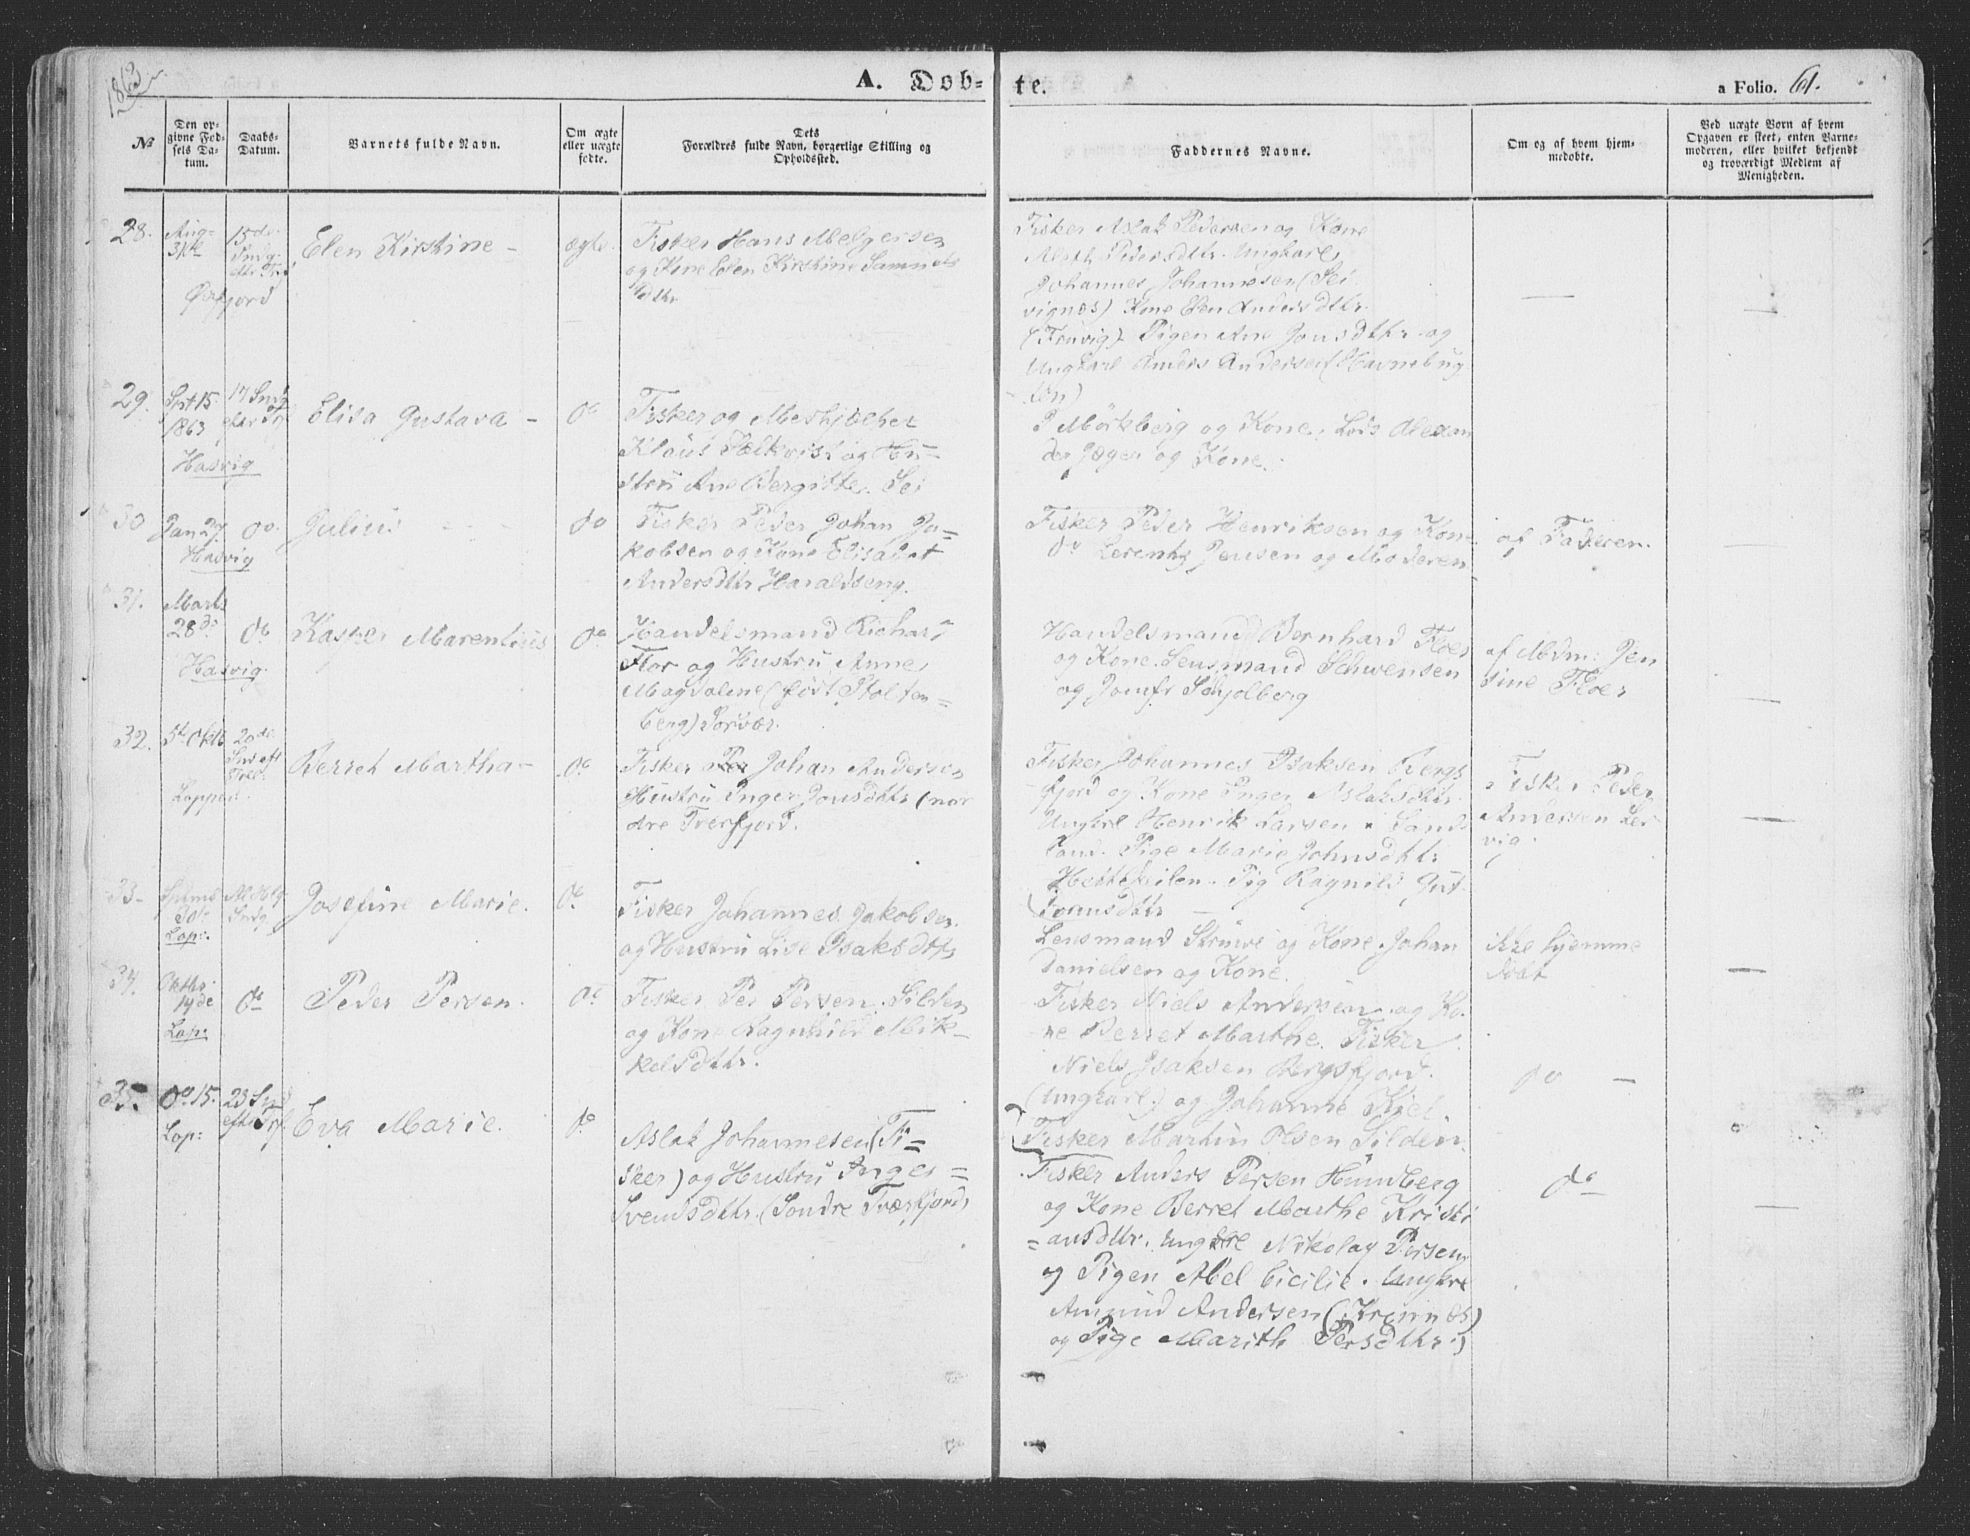 1863
A. Dob-
te.
a Folio. 61.
No
Den op-
givne Fød-
sels Da-
tum.
Daabs-
Datum.
Barnets fulde Navn.
Om ægte
eller uægte
fødte.
Dets
Forældres fulde Navn, borgerlige Stilling og
Opholdssted.
Faddernes Navne.
Om og af hvem hjem-
medøbte.
Ved uægte Børn af hvem
Opgaven er skeet, enten Barne-
moderen, eller hvilket bekjendt
og troværdigt Medlem af
Menigheden.
28.
Aug-
31te
Øxfjord
15de
Elen Kirstine -
ægte.
Fisker Hans Melgersen
og Kone Elen Kirstine Samuels
dtr
Fisker Aslak Pedersen og Kone
Pedersdttr. Ungkarl
Johannes Johannesen (Sei
vignæs) Kone Elen Andersdttr.
Pigen Ane Jonsdttr og
Ungkarl Anders Andersen (Havnebug
ten)
29.
Spt 15
1863
Hasvig
17 Sndg
efter Tref
Elisa Gustava -
do
Fisker og Meshjælper
Klaus Falkvist og Hu-
stru Ane Bergitte. Sei
P Mörkberg og Kone. Lods Alexan
der Jæger og Kone.
30
Jan 27
Hasvig
do.
Julius
do
Fisker Peder Johan Ja-
kobsen og Kone Elisabet
Andersdttr Haraldseng.
Fisker Peder Henriksen og Kone
do Lerents Jensen og Moderen
af Faderen.
31.
Marts
28de
Hasvig.
do
Kasper Marentius
do
Handelsmand Richart
Flor og Hustru Anne
Magdalene (født Stolten-
berg) Sørvær.
Handelsmand Bernhard Floer
og Kone. Lensmand Schwensen
og Jomfr Schjolberg
af Mdm: Jen
sine Floer
32.
5te Okt
Loppen.
20de
Snd eft
Tref.
Berret Martha-
do
Fisker Per Johan Andersen
Hustru Inger Jonsdttr (nor
dre Tverfjord.
Fisker Johannes Isaksen Bergs
fjord og Kone Inger Aslaksdttr
Ungkrl Henrik Larsen Sands
land. Pige Marie Johnsdttr
Pig Ragnild Gut-
tormsdttr
Fisker Peder
Andersen Ler
vig.
33-
30te
Lop:.
Sndg.
Josefine Marie.
do
Fisker Johannes Jakobsen
og Hustru Lise Isaksdttr
Lensmand Struve og Kone. Johan
Danielsen og Kone.
ikke hjemme
døbt
34.
Okthr
14de
Lop:
do
Peder Persen.
do
Fisker Per Persen Silden
og Kone Ragnhild Mik-
kelsdttr.
Fisker Niels Andersen og Ko-
ne Berret Marthe. Fisker
Niels Isaksen Bergsfjord.
(Ungkarl.) og Johanne Kiel.
(Fisker Martin Olsen Silden.
do -
35.
do 15.
Lop:
23 Snd
efte Tref
Eva Marie.
do
Aslak Johannesen (Fi=
sker) og Hustru Inger =
Svendsdttr. (Sondre Tværfjord)
Fisker Anders Persen
og Kone Berret Marthe Kristi
=ansdttr. Ungkrl Nikolay Persen
og Pigen Abel Cicilie. Ungkrl
Amund Andersen (Krienæs)
og Pige Marith Persdttr.)
do